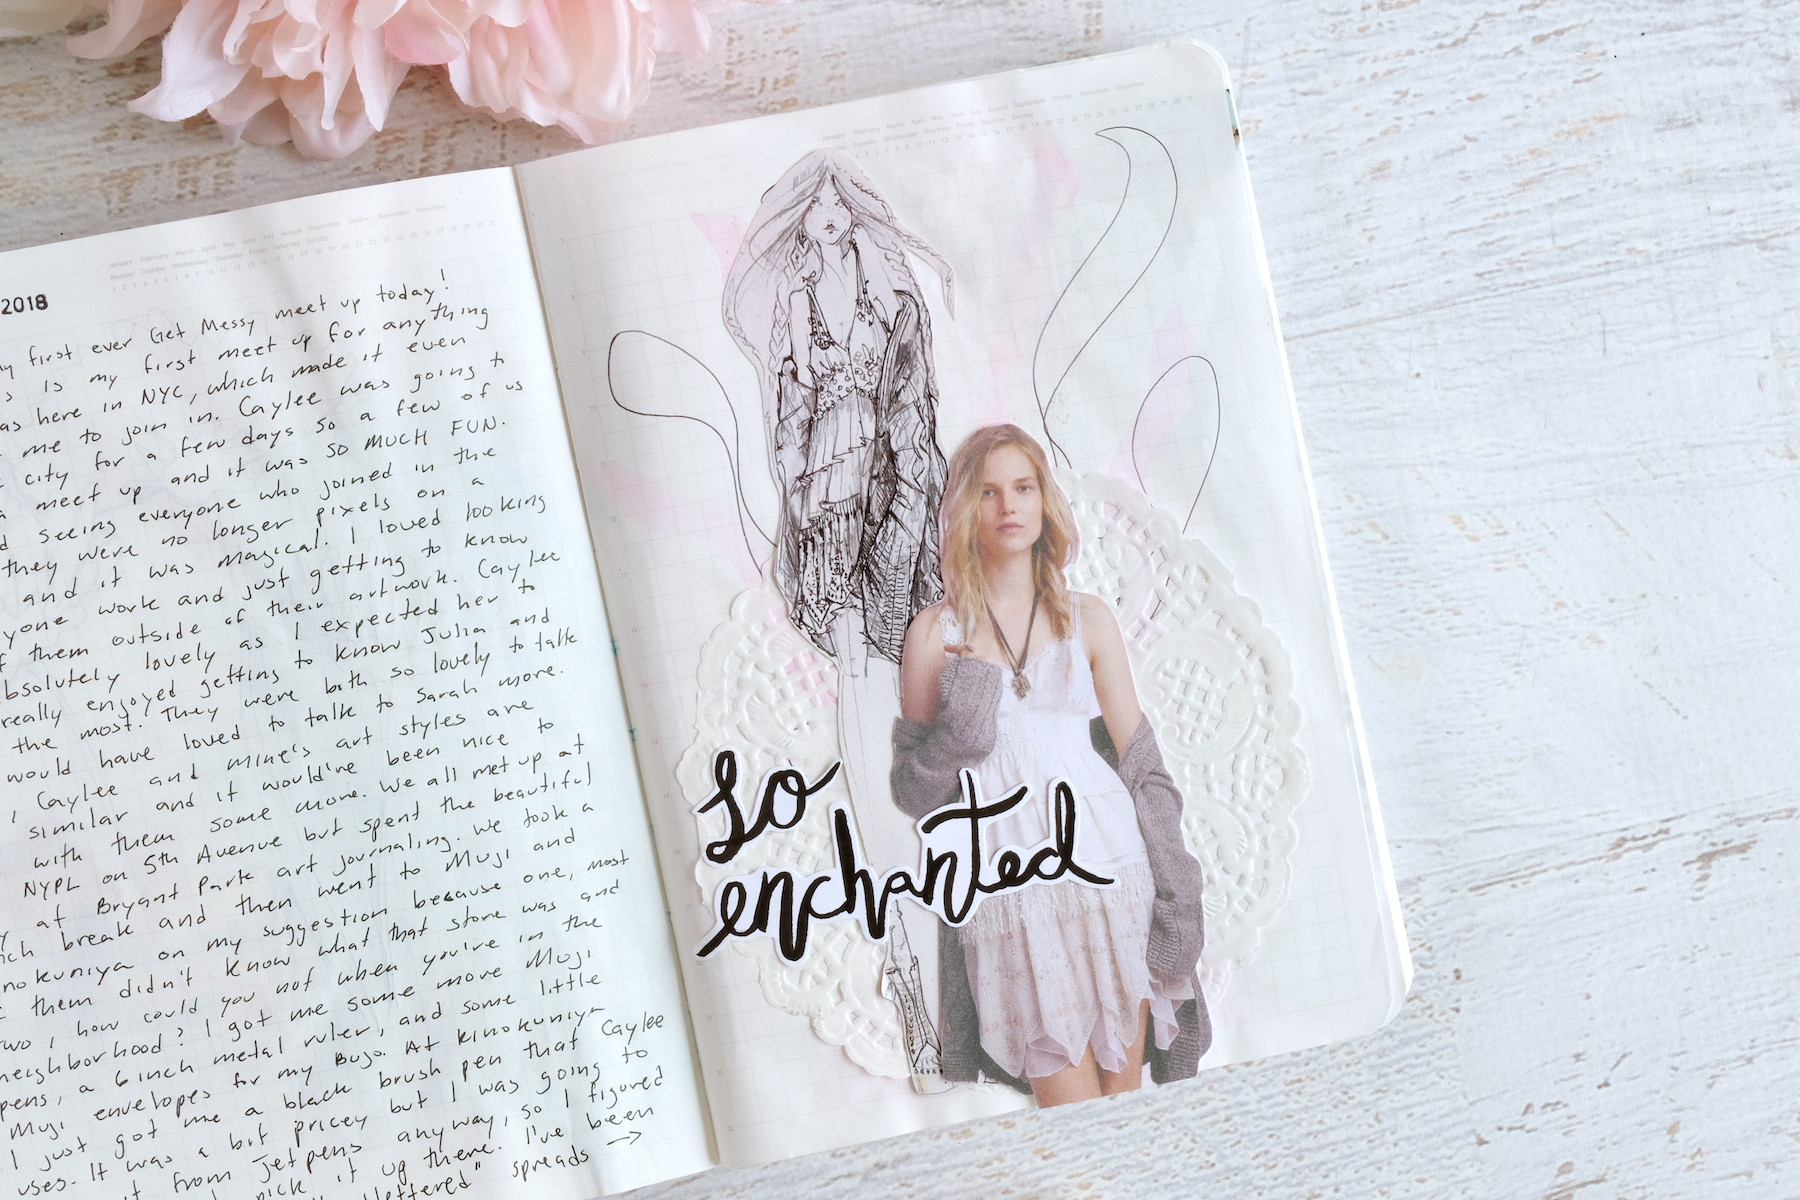 2018
first ever Get Messy meet up today!
is my first meet up for anything
here in NYC, which made it even
me to join in. Caylee was going to
city for a few days so a few of us
meet up and it was SO MUCH FUN.
seeing everyone who joined in the
they were no longer pixels on a
and it was magical. I loved looking
work and just getting to know
them outside of their artwork. Caylee
lovely as I expected her to
really enjoyed getting to know Julia and
the most. They were both so lovely to talk
would have loved to talk to Sarah more.
Caylee and mine's art styles are
similar and it would've been nice to
with them some more. We all met up at
NYPL on 5th Avenue but spent the beautiful
at Bryant Park art journaling. We took a
break and then went to Muji and
on my suggestion because one, most
them didn't know what that store was and
two, how could you not when you're in the
neighborhood? I got me some more Muji
pens, a 6 inch metal ruler, and some little
Muji envelopes for my Bujo. At Kinokuniya
I just got me a black brush pen that Caylee
uses. It was a bit pricey but I was going to
it from Jetpens anyway, so I figured
pick it up there. I've been
lettered" spreads →
January February March April May June July August September October November December
Monday Tuesday Wednesday Thursday Friday Saturday Sunday
January February March April May June July August September October November December
Monday Tuesday Wednesday Thursday Friday Saturday Sunday
So
enchanted